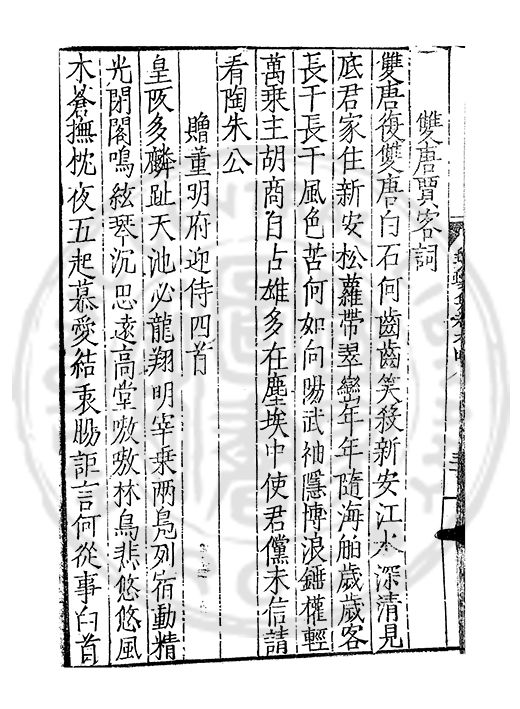 雙唐賈客詞
雙唐復雙唐白石何齒齒笑殺新安江水深清見
底君家住新安松蘿帶翠巒年年隨海舶歲歲客
長干長干風色苦何如向陽武袖隱博浪錘權輕
萬乘主胡商自占雄多在塵埃中使君儻未信請
看陶朱公
贈董明府迎侍四首
皇阪多麟趾天池必龍翔明宰乗兩鳧列宿動精
光閉閣鳴絃琴沉思遠高堂嗷嗷林鳥悲悠悠風
木蒼撫枕夜五起慕愛結衷腸詎言何從事白首